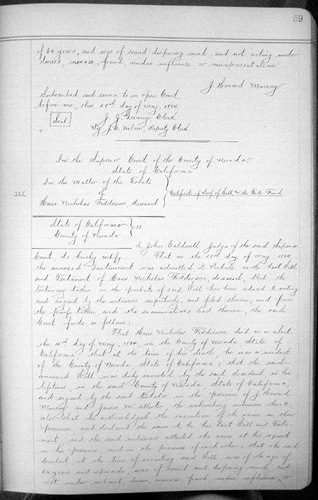 59
of 64 years, and was of sound disposing mind, and not acting under
duress, menace, fraud, undue influence, or misrepresentation
J. Howard Murray
Subscribed and sworn to in open Court
before me, this day of May, 1880
Seal J. J. Clerk
By J. E. Deputy Clerk
In the Superior Court of the County of Nevada
State of California
In the Matter of the Estate
of
Hans Nicholas deceased
Certificate of Proof of Will and the Facts Found
State of California
County of Nevada ss
I, John Caldwell Judge of the said Superior
Court do hereby certify That on the day of May, 1880
the annexed Instrument was admitted to Probate as the Last Will
and Testament of Hans Nicholas deceased, that the
testimony taken in the probate of said Will has been reduced to writing
and signed by the witnesses respectively, and filed therein, and from
the proofs taken, and the examinations had therein, the said
Court finds as follows:
That Hans Nicholas died on or about
the day of May, 1880, in the County of Nevada State of
California, that at the time of his death, he was a resident
of the County of Nevada State of California, that the said
annexed Will was duly executed by the said decedent in his
lifetime in the said County of Nevada State of California,
and signed by the said testator in the presence of J. Howard
Murray and James the subscribing witnesses thereto
also that he acknowledged the execution of the same in their
presence, and declared the same to be his Last Will and Testa-
ment, and the said witnesses attested the same at his request
in his presence, and in the presence of each other, that the said
decedent at the time of executing said Will was of the age of
64 years and upwards, was of sound and disposing mind, and
not under restraint, menace, fraud, undue influence, or